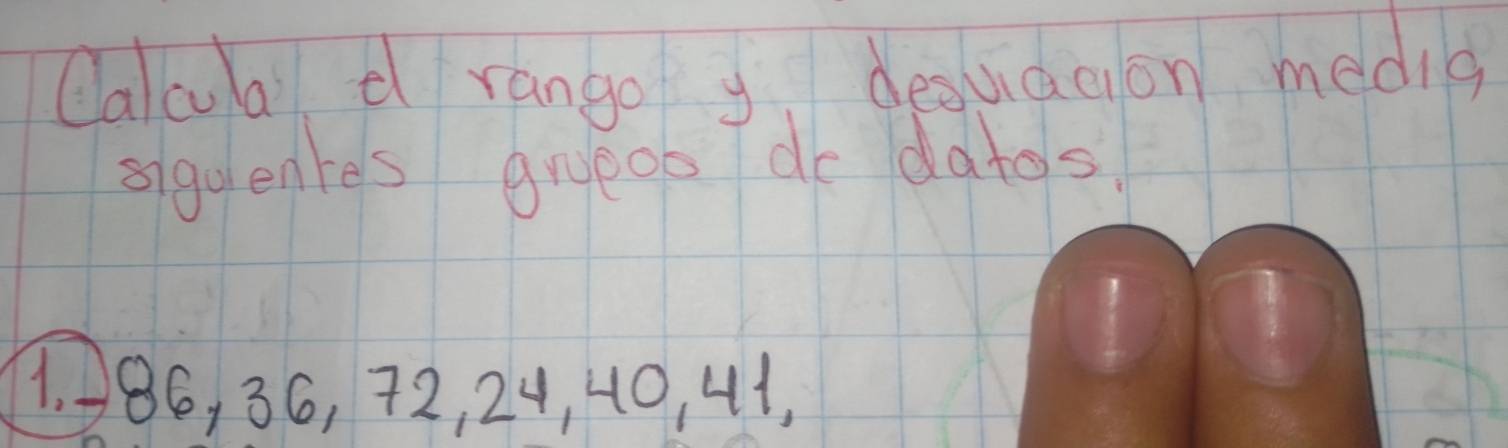 Calcula el rango y desviación media
siguientes grupos de datos.
1.- 86, 36, 72, 24, 40, 41,